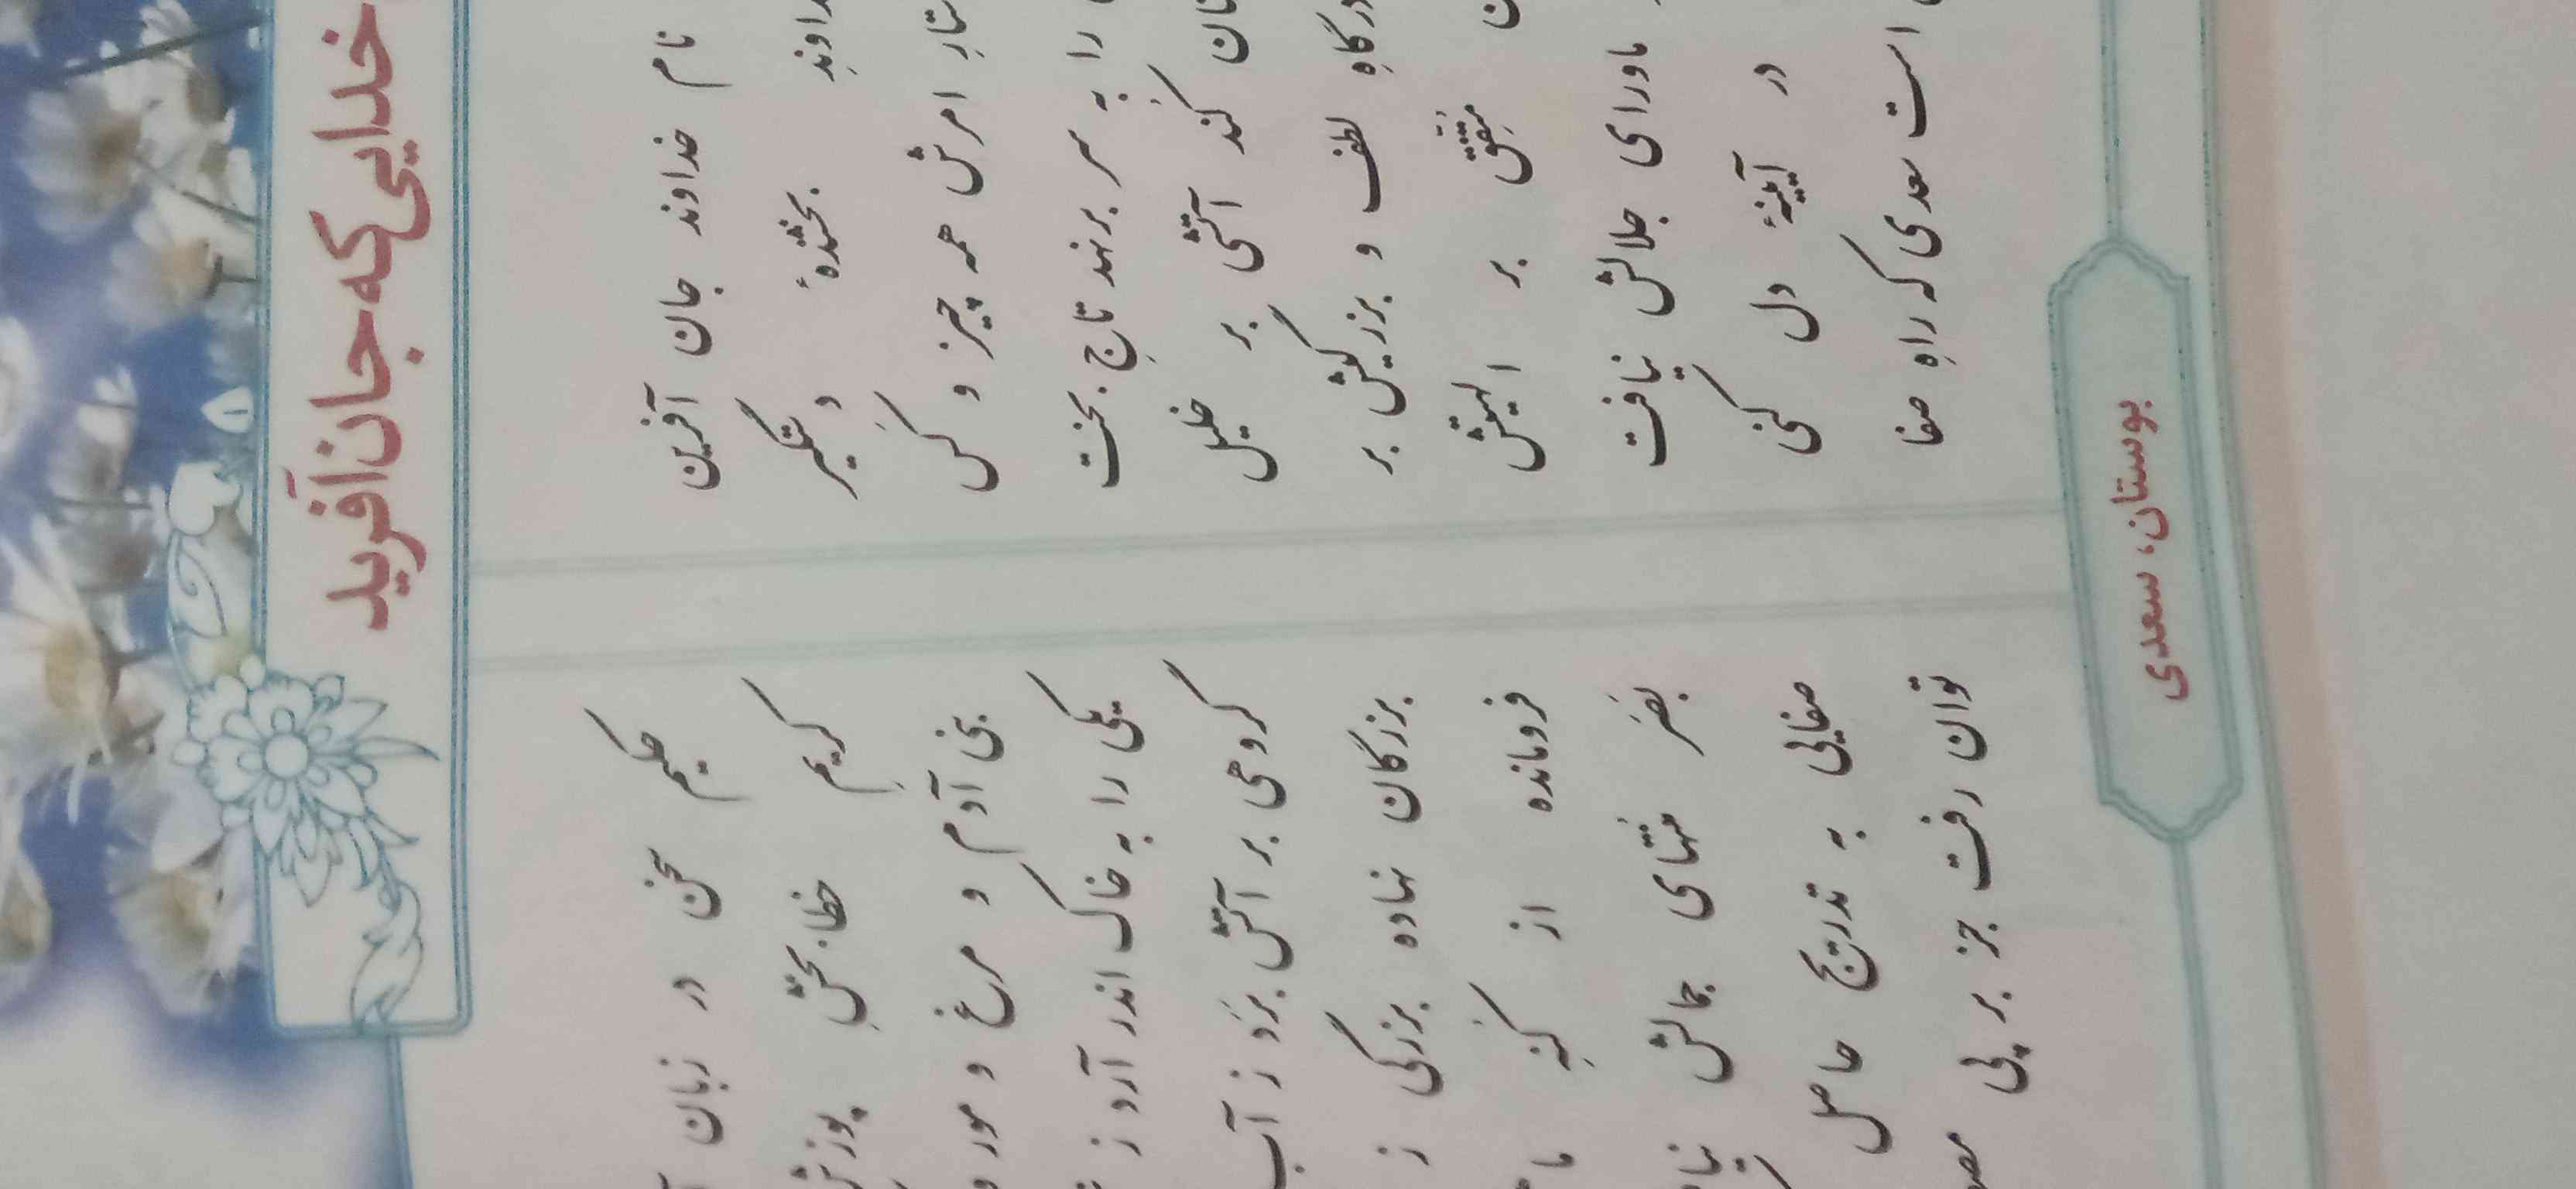 خدایی که جان آفرید
نام خداوند جان آفرین حکیم سخن در زبان
بخشندهٔ دستگیر کریمِ خطابخشِ
امرش همه چیز و کَس بنی آدم و مرغ و مور و
را به سر برنهد تاجِ بخت یکی را به خاک اندر آرد ز
کُند آتشی بر خلیل گروهی بر آتش بَرَد ز آب
درگاهِ لطف و بزرگیش بر بزرگان نهاده بزرگی ز
مُتَّفِق بر الهیتش فرومانده از کُنهِ
ماورای جلالش نیافت بَصَر مُنتهای جمالش
در آیینهٔ دل کنی صفایی به تدریج حاصل
است سعدی که راهِ صفا توان رفت جز بر پی
بوستان، سعدی